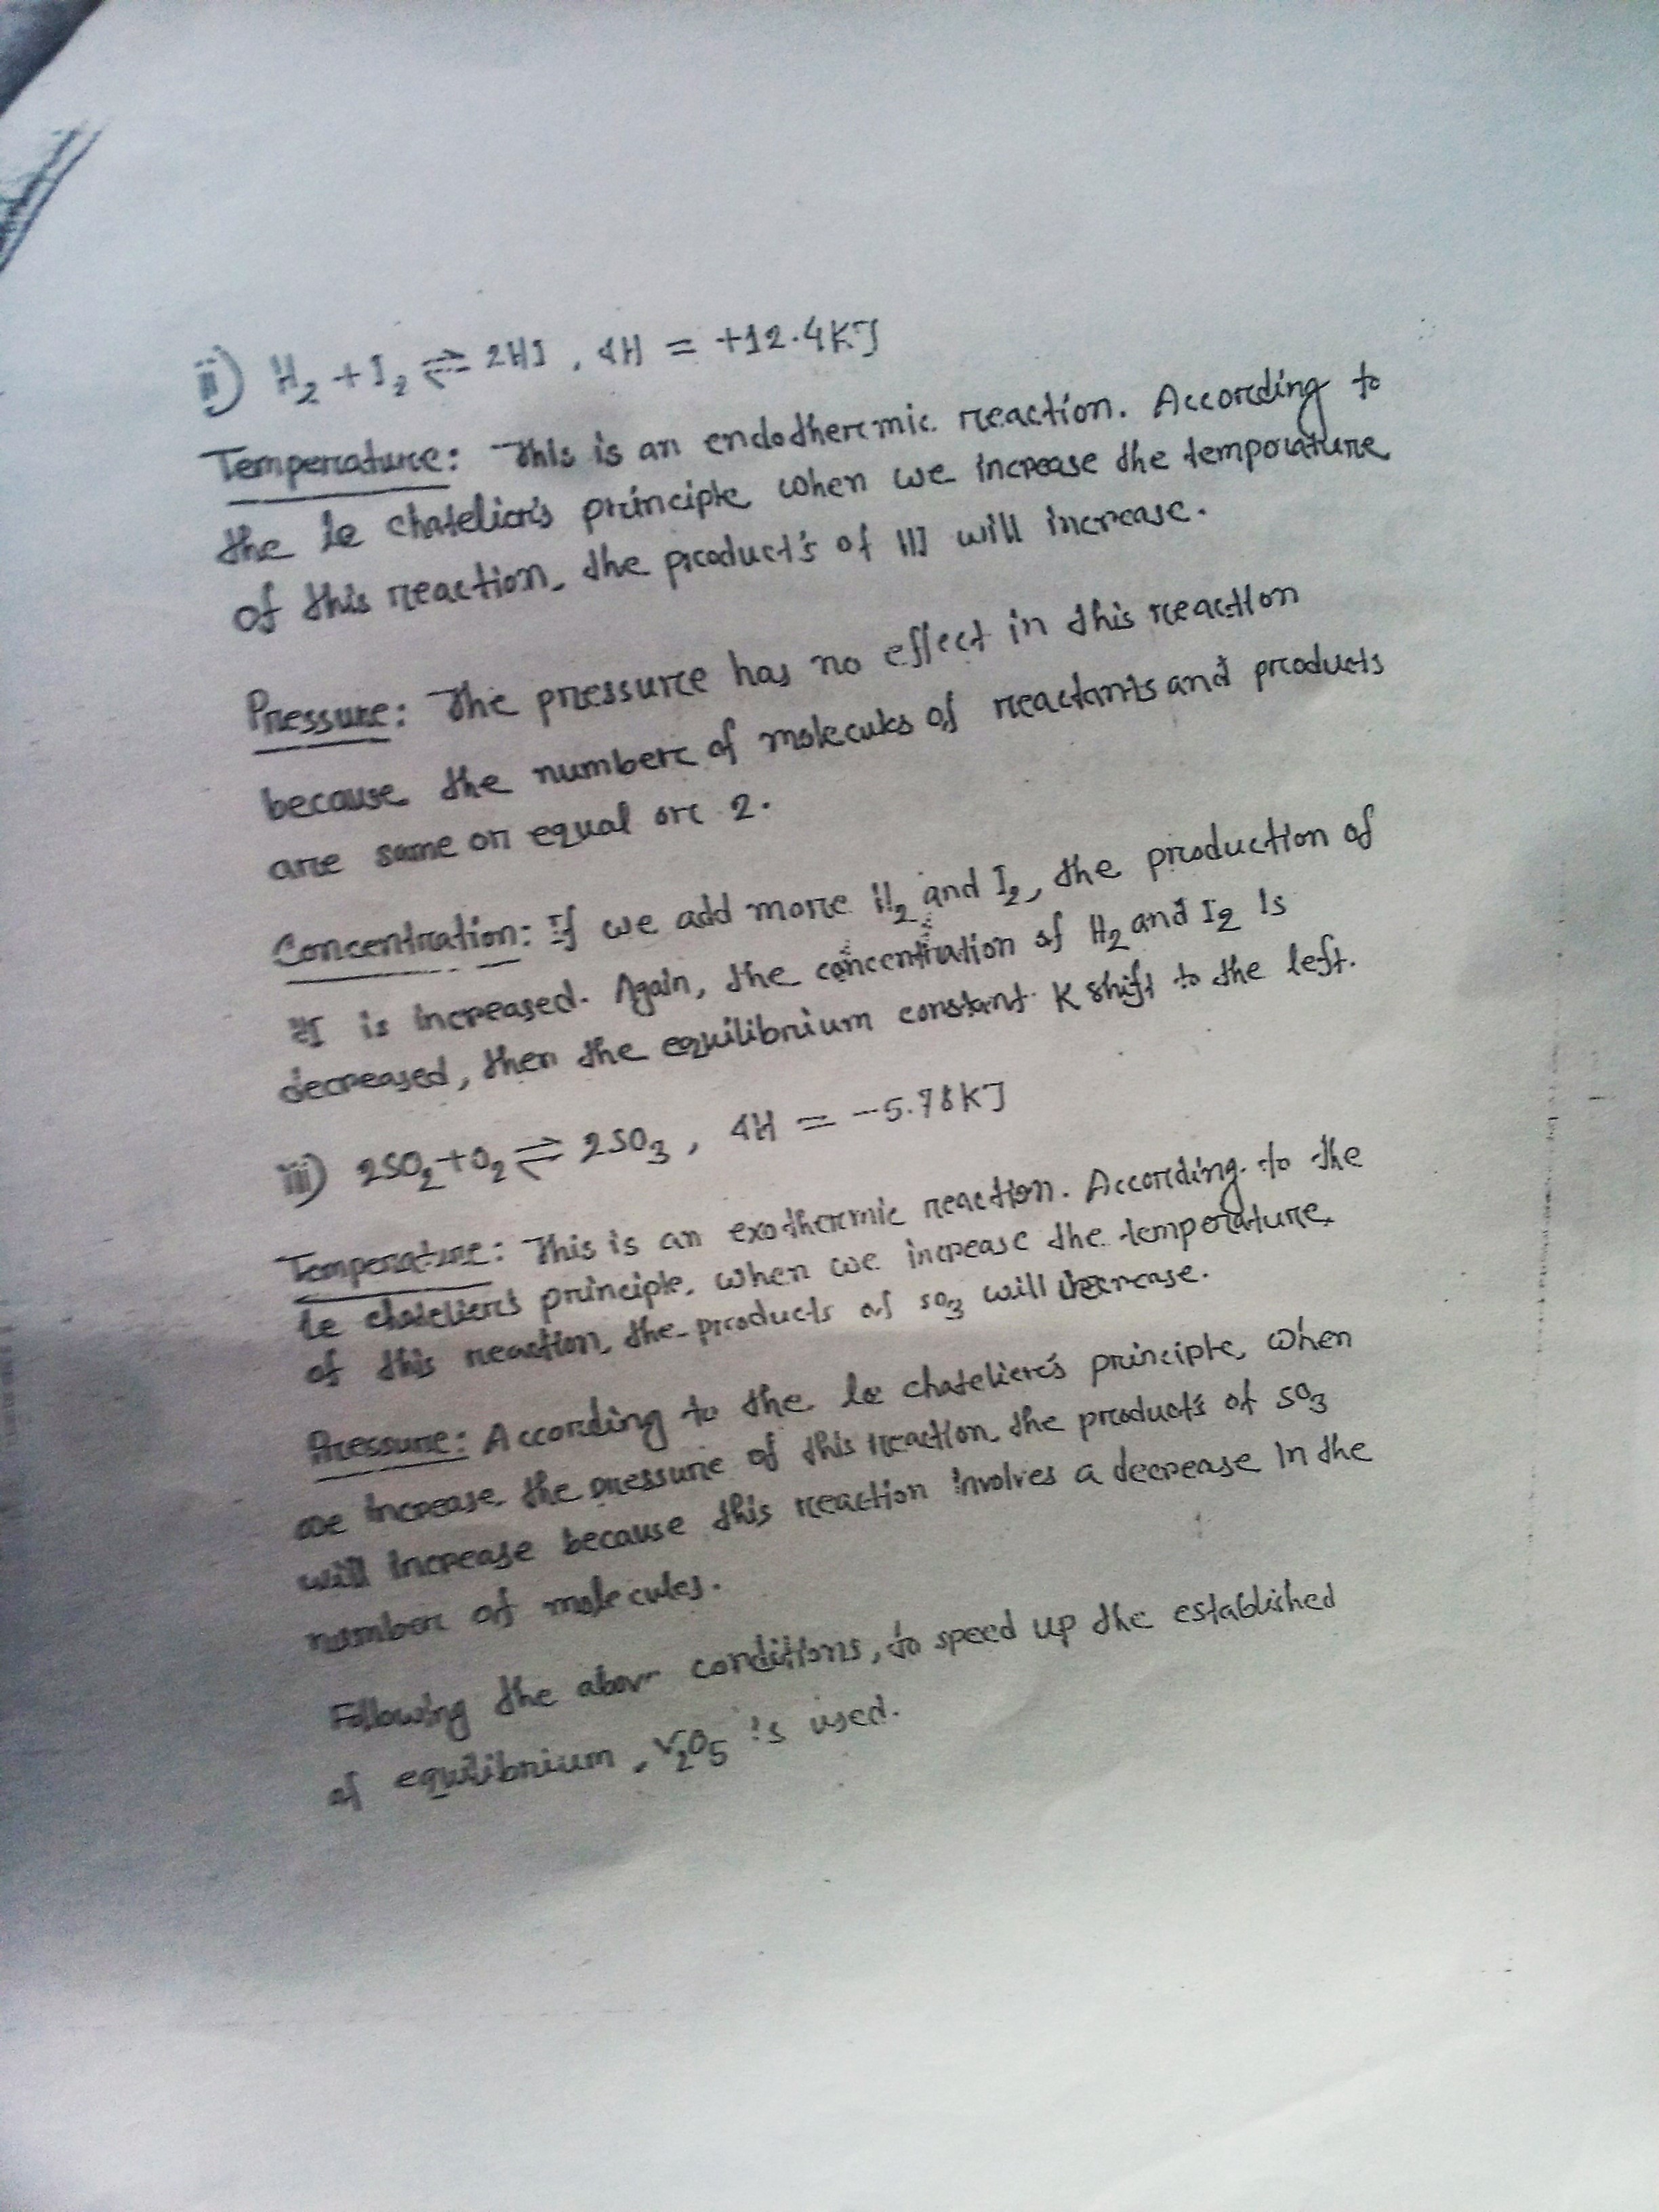 ii) H₂ + I₂ ⇌ 2HI, ΔH = +12.4KJ
Temperature: This is an endothermic reaction. According to
the le chatelier's principle when we increase the temperature
of this reaction, the product's of HI will increase.
Pressure: The pressure has no effect in this reaction
because the number of molecules of reactants and products
are same or equal or 2.
Concentration: If we add more H₂ and I₂, the production of
HI is increased. Again, the concentration of H₂ and I₂ is
decreased, then the equilibrium constant K shift to the left.
iii) 2SO₂+O₂ ⇌ 2SO₃, ΔH = -5.78KJ
Temperature: This is an exothermic reaction. According to the
le chatelier's principle, when we increase the temperature
of this reaction, the products of SO₃ will decrease.
Pressure: According to the le chatelier's principle, when
we increase the pressure of this reaction, the product's of SO₃
will increase because this reaction involves a decrease in the
number of molecules.
Following the above conditions, to speed up the established
of equilibrium, V₂O₅ is used.